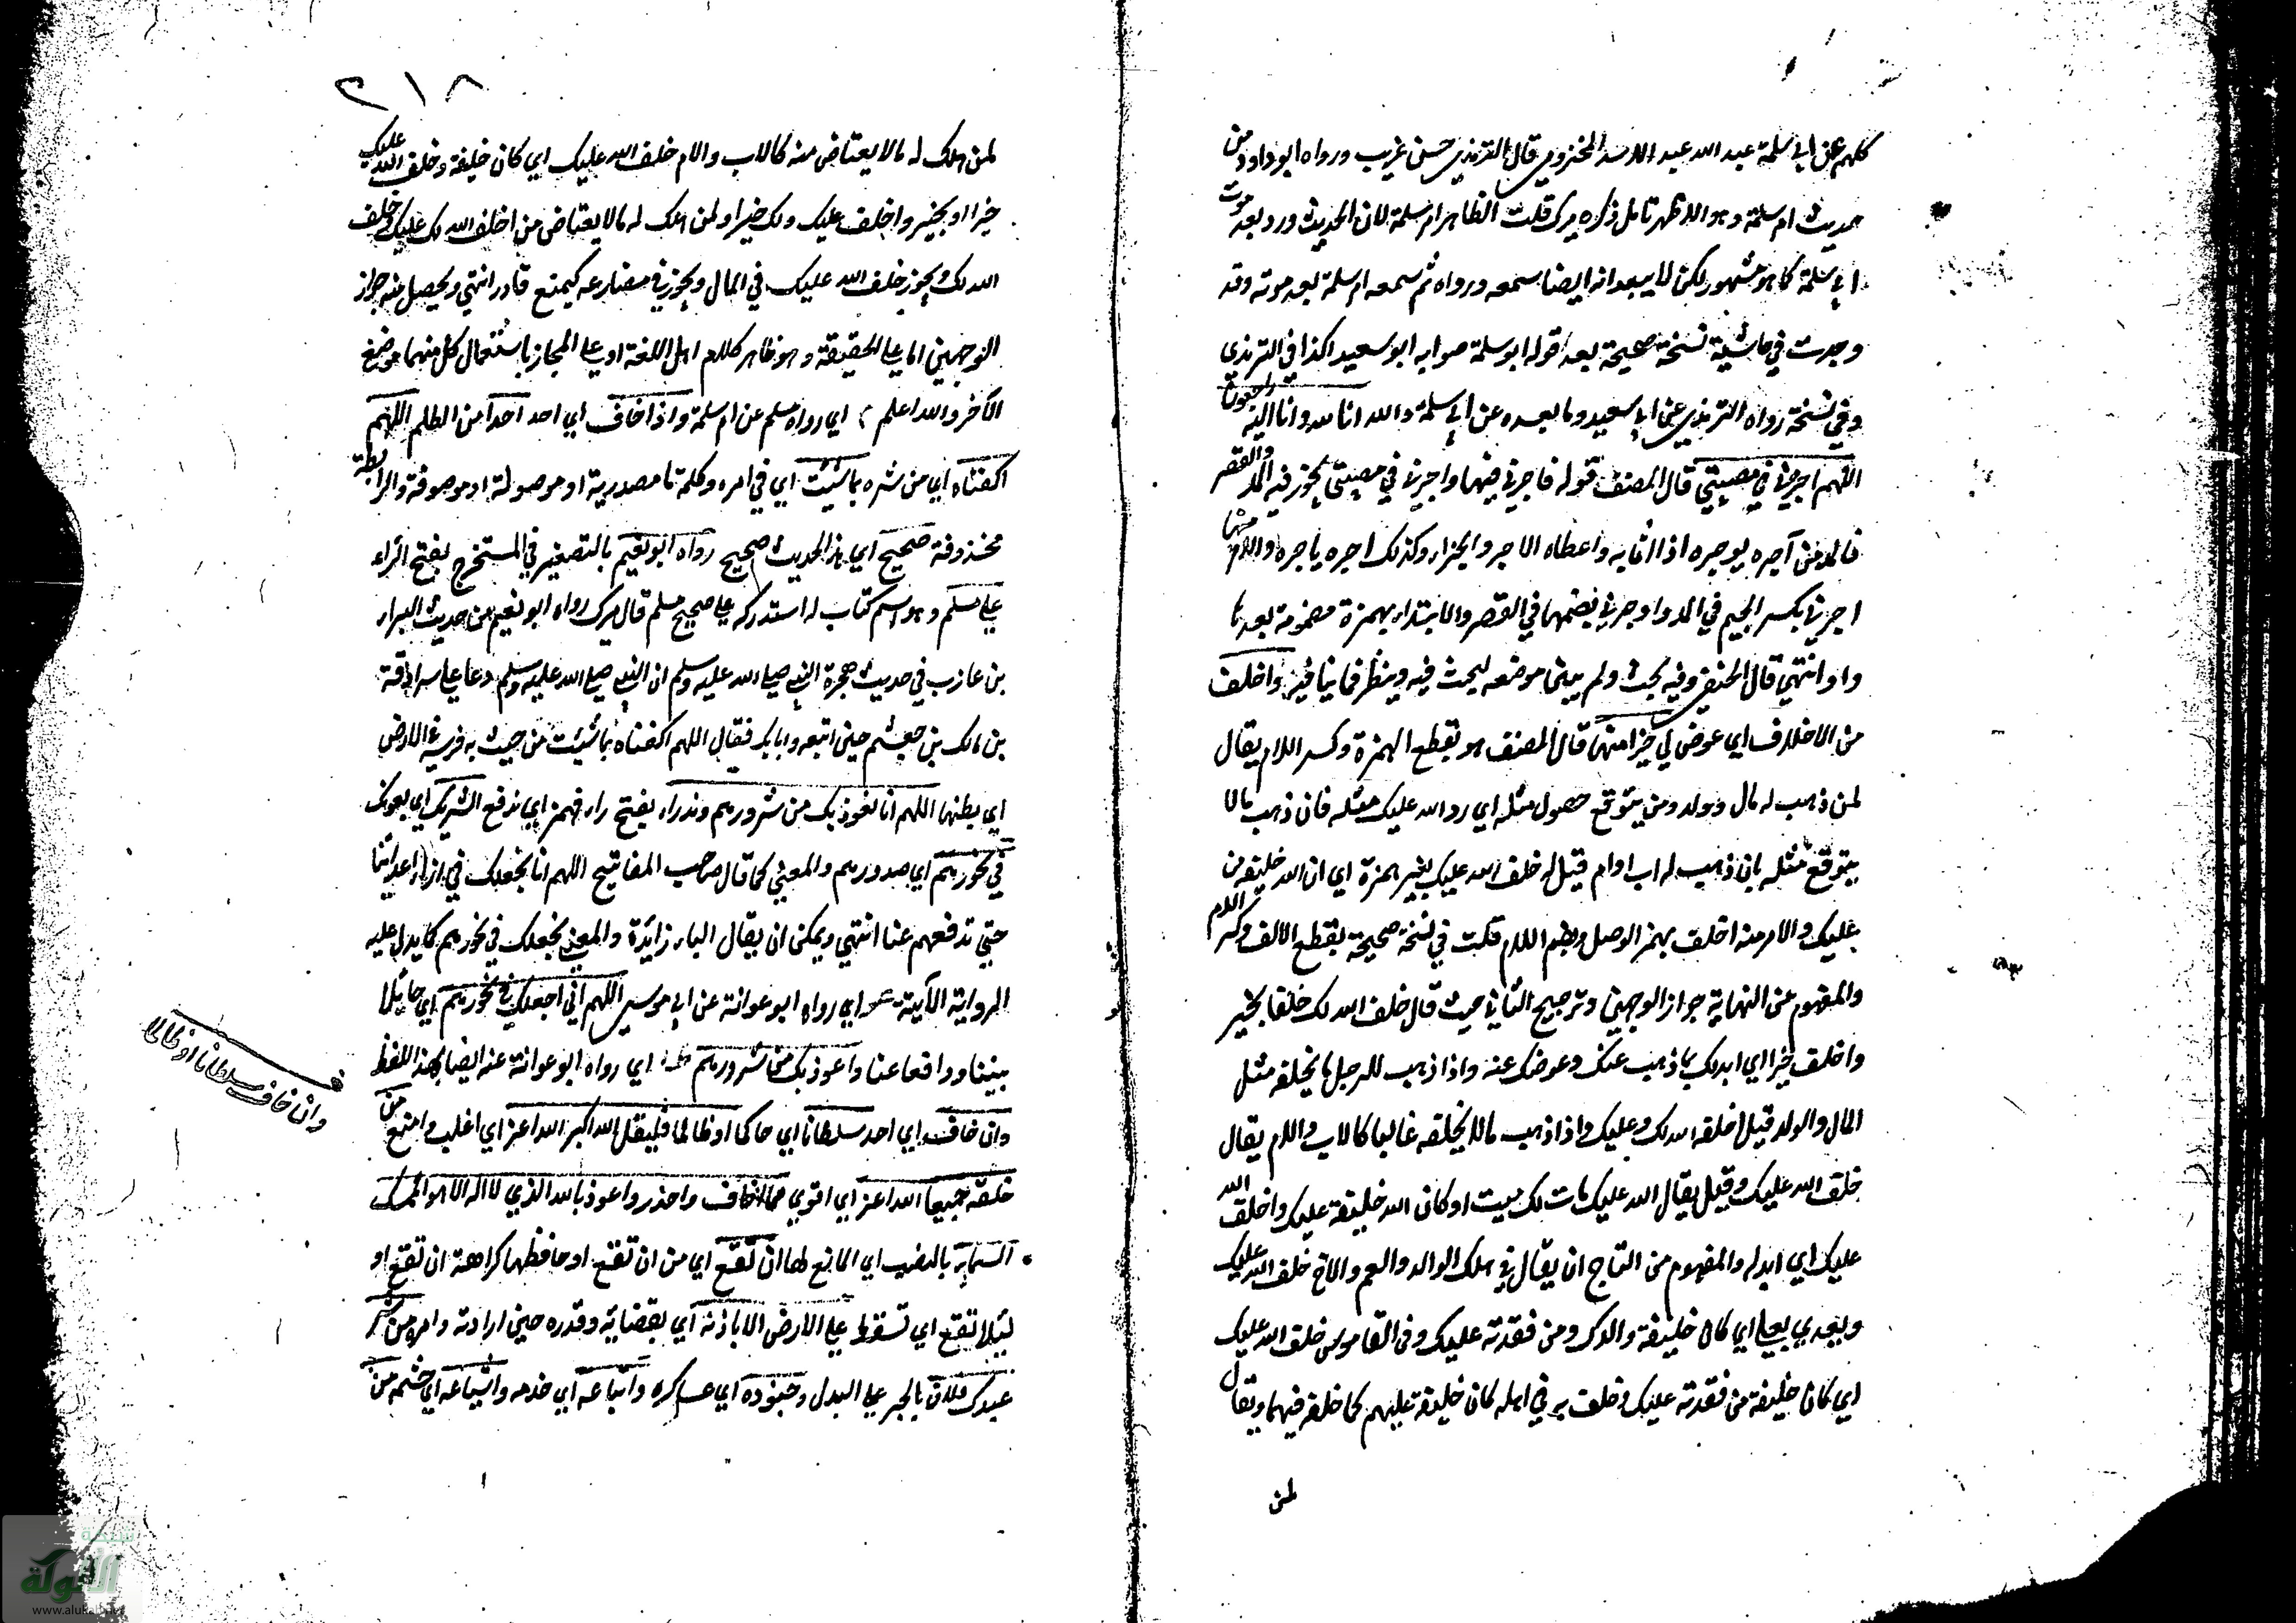 كلهم عن ابي سلمة عبد الله عبد الاسد المخزومي قال الترمذي حسن غريب ورواه ابو داود من
حديث ام سلمة وهو الاظهر تامل ذكره ميرك قلت الظاهر ام سلمة لان الحديث ورد بعد موت
ابي سلمة كما هو مشهور لكن لا يبعد انه ايضا سمعه ورواه ثم سمعه ام سلمة بعد موته وقد
وجدت في حاشية نسخة صحيحة بعد قوله ابو سلمة صوابه ابو سعيد اكذا في الترمذي
وفي نسخة رواه الترمذي عن ابي سعيد وما بعده عن ابي سلمة والله انا لله وانا اليه راجعون
اللهم اجرني في مصيبتي قال المصنف قوله فاجرني فيها واجرني في مصيبتي يجوز فيه المد والقصر
فالمد من آجره يوجره اذا اثابه واعطاه الاجر والجزاء وكذلك اجره ياجره والامر منهما
اجرني بكسر الجيم في المد واوجرني بضمها في القصر والابتداء بهمزة مضمومة بعدها
واو انتهى قال الحنفي وفيه بحث ولم يبين موضعه ليحث فيه وينظر فما ينافيه واخلف
من الاخلاف اي عوض لي خيرا منها قال المصنف هو بقطع الهمزة وكسر اللام يقال
لمن ذهب له مال وولد ومن يتوقع حصول مثله اي رد الله عليك مثله فان ذهب مالا
يتوقع مثله بان ذهب له اب او ام قيل له خلف الله عليك بغير همزة اي ان الله خليفة من
عليك والامر منه اخلف بهمز الوصل وبضم اللام قلت في نسخة صحيحة بقطع الالف وكسر اللام
والمفهوم من النهاية جواز الوجهين وترجيح الثاني حيث قال خلف الله لك خلفا بخير
واخلف خيرا اي ابدلك بما ذهب عنك وعوضك عنه واذا ذهب للرجل ما يخلفه مثل
المال والولد قيل اخلفه الله لك وعليك واذا ذهب مالا يخلفه غالبا كالاب والام يقال
خلف الله عليك وقيل يقال الله عليك مات لك ميت او كان الله خليفة عليك واخلف الله
عليك اي ابدله والمفهوم من التاج ان يقال في هلك الوالد والعم والاخ خلف الله عليك
ويعدي بعلى اي كان خليفة والدك ومن فقدته عليك وفي القاموس خلف الله عليك
اي كان خليفة من فقدته عليك وخلف به في اهله كان خليفة عليهم كما خلفه فيهما ويقال
لمن
٢١٨
لمن هلك له مالا يعتاض منه كالاب والام خلف الله عليك اي كان خليفة وخلف الله عليك
خيرا او بخير واخلف عليك ولك خيرا ولمن هلك له مالا يعتاض من اخلف الله لك عليك وخلف
الله لك ويجوز خلف الله عليك في المال ويجوز في مضارعه كيمنع قادر انتهى ويحصل منه جواز
الوجهين اما على الحقيقة وهو ظاهر كلام اهل اللغة او على المجاز باستعمال كل منهما موضع
الآخر والله اعلم اي رواه مسلم عن ام سلمة واذا خاف اي احد احدا من الظلم اللهم
اكفناه اي من شره بما شئت اي في امره وكلمة ما مصدرية او موصولة او موصوفة والرابطة
محذوفة صحيح اي هذا الحديث صحيح رواه ابو نعيم بالتصغير في المستخرج بفتح الراء
على مسلم وهو اسم كتاب له استدركه على صحيح مسلم قال ميرك رواه ابو نعيم من حديث البراء
بن عازب في حديث هجرة النبي صلى الله عليه وسلم ان النبي صلى الله عليه وسلم دعا على سراقة
بن مالك بن جعشم حين اتبعه وابا بكر فقال اللهم اكفناه بما شئت من حيث به فرسه في الارض
اي بطنها اللهم انا نعوذ بك من شرورهم وندراء بفتح راء فهمز اي ندفع الشر بك اي بعونك
في نحورهم اي صدورهم والمعنى كما قال صاحب المفاتيح اللهم انا نجعلك في ازاء اعدائنا
حتى تدفعهم عنا انتهى ويمكن ان يقال الباء زائدة والمعنى نجعلك في نحورهم كما يدل عليه
الرواية الآتية عو اي رواه ابو عوانة عن ابي موسى اللهم اني اجعلك في نحورهم اي حائلا
بيننا ودافعا عنا واعوذ بك من شرورهم اي رواه ابو عوانة عنه ايضا بهذا اللفظ
وان خاف اي احد سلطانا اي حاكما او ظالما فليقل الله اكبر الله اعز اي اغلب وامنع من
خلقه جميعا الله اعز اي اقوى مما اخاف واحذر واعوذ بالله الذي لا اله الا هو الممسك
السماء بالنصب اي المانع لها ان تقع اي من ان تقع او حافظها كراهة ان تقع او
لئلا تقع اي تسقط على الارض الا باذنه اي بقضائه وقدره حين ارادته وامره من شر
عبدك فلان بالجر على البدل وجنوده اي عساكره واتباعه اي خدمه واشياعه اي حشمه من
وان خاف سلطانا او ظالما
شبكة
الألوكة
www.alukah.net